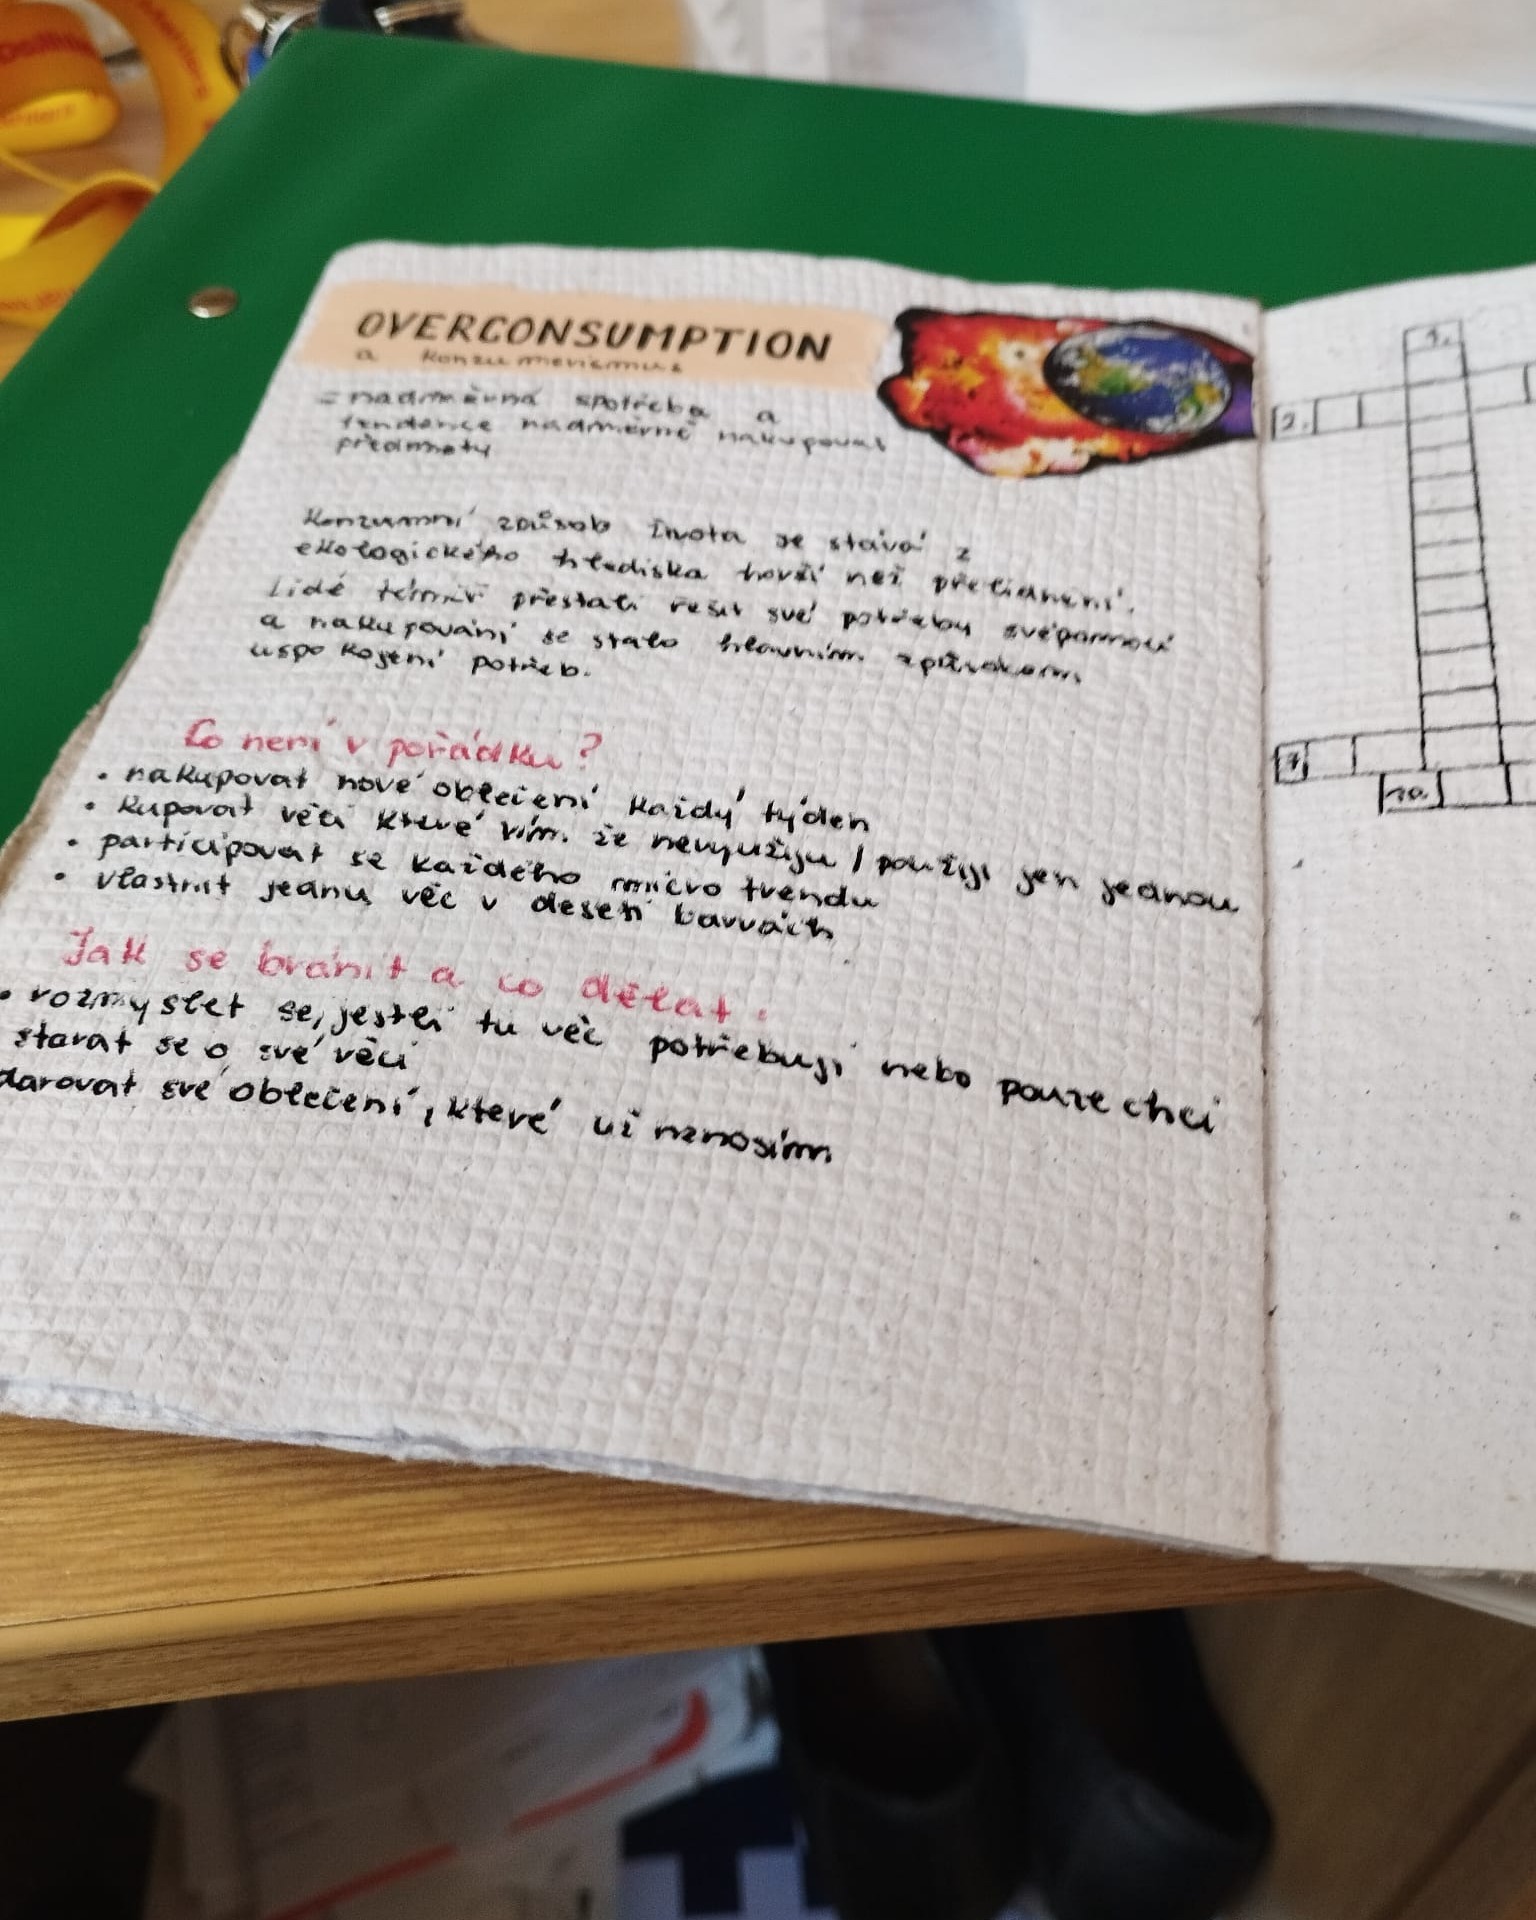 OVERCONSUMPTION
a konzumerismus
= nadměrná spotřeba a
tendence nadměrně nakupovat
předměty
Konzumní způsob života se stává z
ekologického hlediska horší než přelidnění.
Lidé téměř přestali řešit své potřeby svépomocí
a nakupování se stalo hlavním způsobem
uspokojení potřeb.
Co není v pořádku?
• nakupovat nové oblečení každý týden
• kupovat věci které vím že nevyužiju / použiji jen jednou
• participovat se každého micro trendu
• vlastnit jednu věc v deseti barvách
Jak se bránit a co dělat.
• rozmyslet se, jestli tu věc potřebuji nebo pouze chci
starat se o své věci
darovat své oblečení, které už nenosím
1.
2.